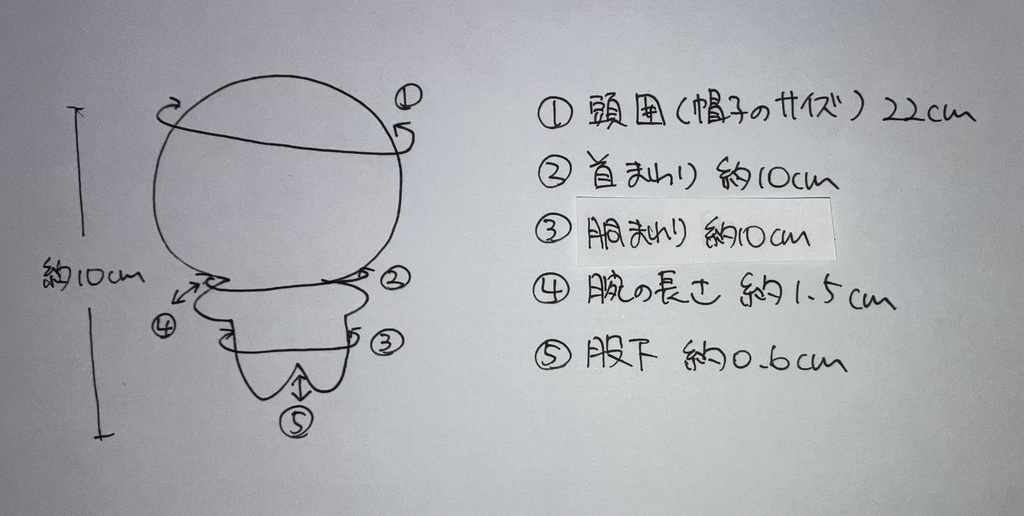 ①
約10cm
②
④
③
⑤
① 頭囲(帽子のサイズ) 22cm
② 首まわり 約10cm
③ 胴まわり 約10cm
④ 腕の長さ 約1.5cm
⑤ 股下 約0.6cm